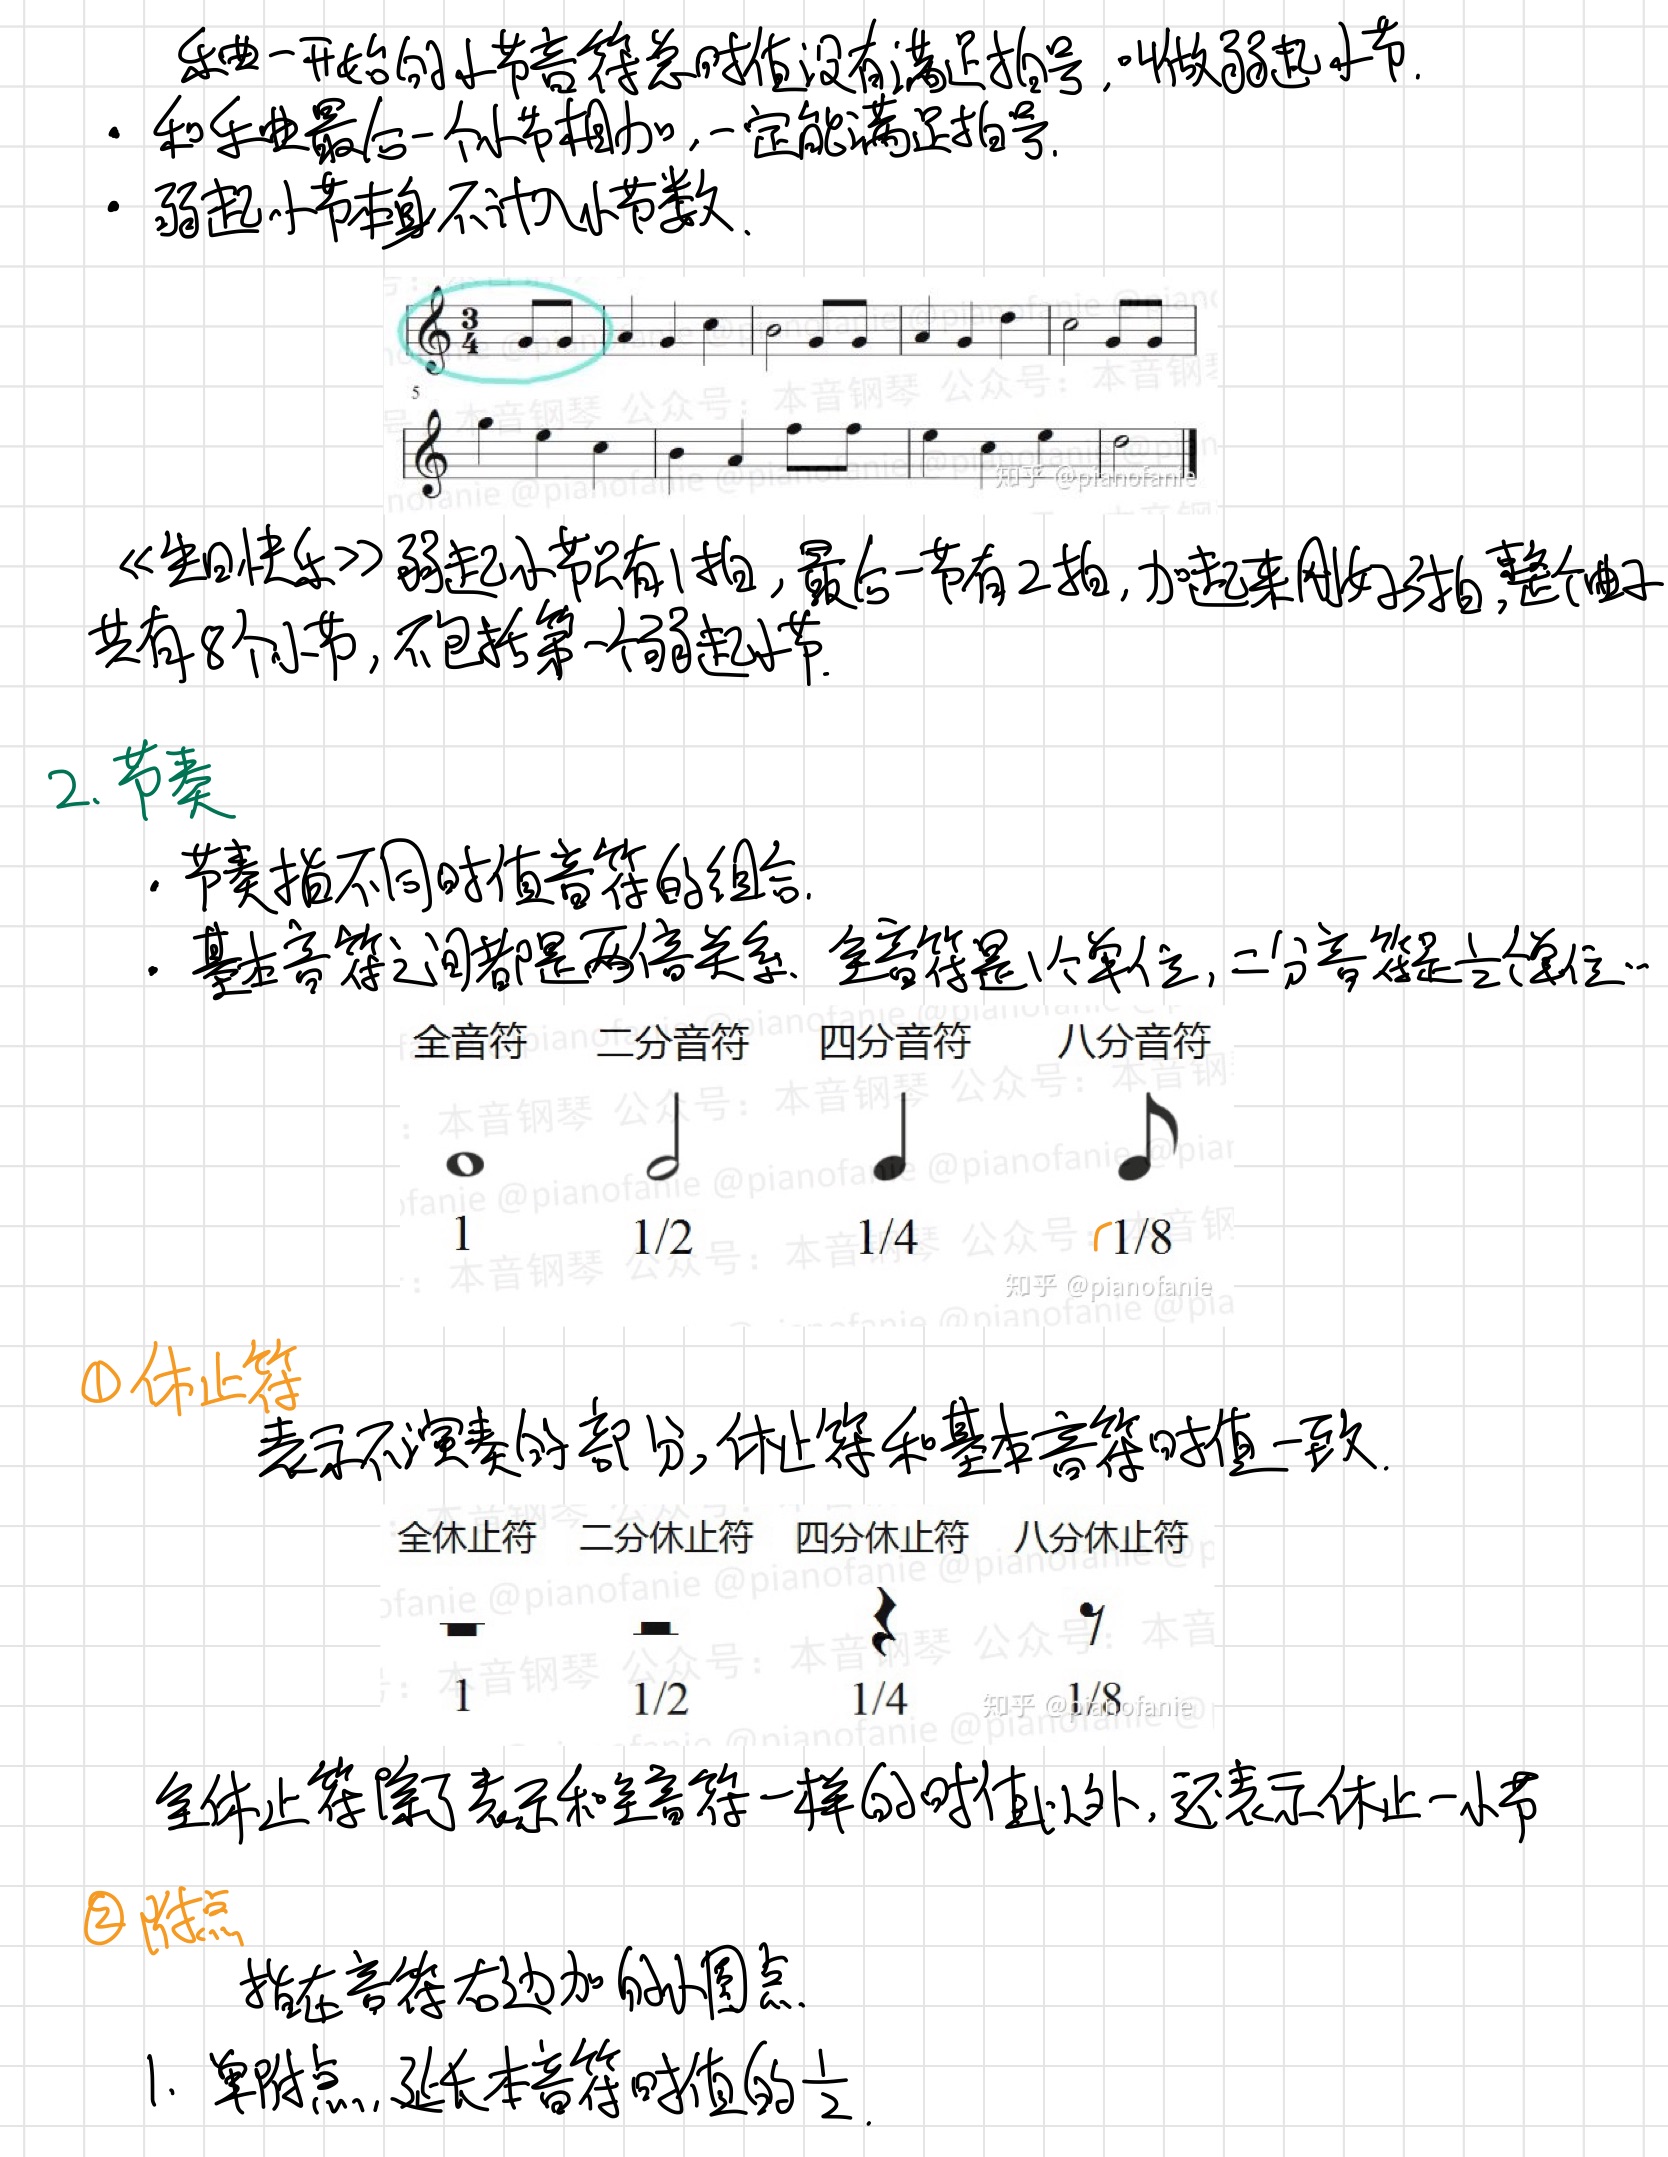 乐曲一开始的小节音符总时值没有满足拍号，叫做弱起小节.
· 和乐曲最后一个小节相加，一定能满足拍号.
· 弱起小节本身不计入小节数.
3
4
5
公众号：本音钢琴
知乎 @pianofanie
《生日快乐》弱起小节只有1拍，最后一节有2拍，加起来刚好3拍，整个曲子
共有8个小节，不包括第一个弱起小节.
2. 节奏
· 节奏指不同时值音符的组合.
· 基本音符之间都是两倍关系、全音符是1个单位，二分音符是1/2个单位…
全音符 二分音符 四分音符 八分音符
1 1/2 1/4 1/8
知乎 @pianofanie
① 休止符
表示不演奏的部分，休止符和基本音符时值一致.
全休止符 二分休止符 四分休止符 八分休止符
1 1/2 1/4 1/8
知乎 @pianofanie
全休止符除了表示和全音符一样的时值以外，还表示休止一小节
② 附点
指在音符右边加的小圆点.
1. 单附点，延长本音符时值的1/2.